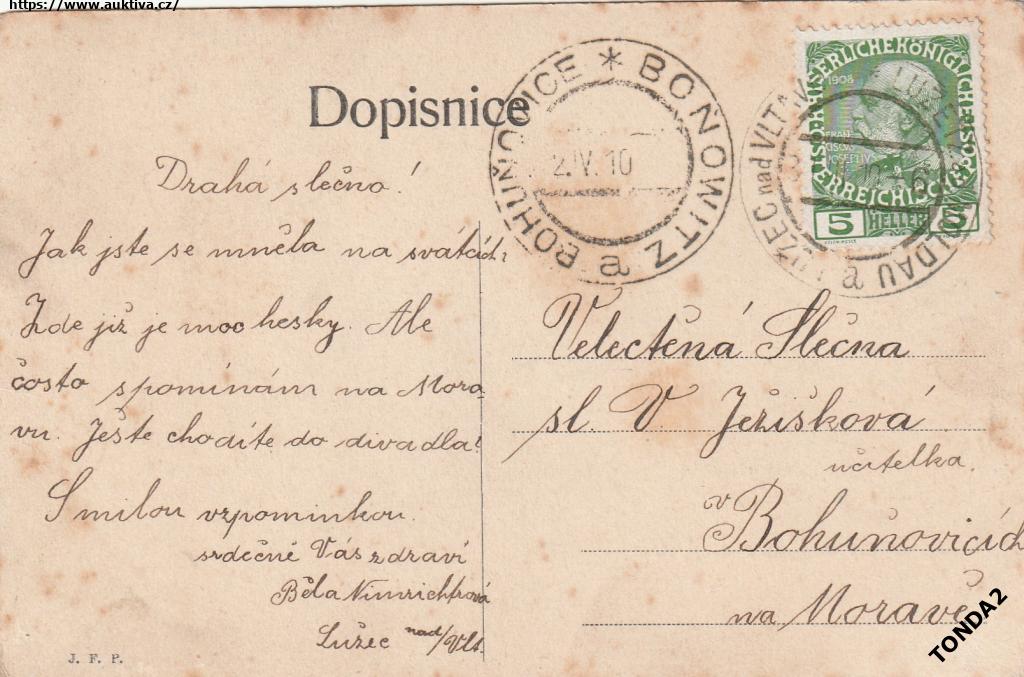 https://www.auktiva.cz/
Dopisnice
Drahá slečno!
Jak jste se mněla na svátcích?
Zde již je moc hesky. Ale
často spomínám na Mora-
vu. Ješte chodíte do divadla?
S milou vzpomínkou
srdečně Vás zdraví
Běla Nimrichtrová
Lužec nad/Vlt.
J. F. P.
BOHUŇOVICE * BONOWITZ a
2.IV.10
LUŽEC nad VLTAVOU
MOLDAU a
6
KAISERLICHEKÖNIGLICHE
ÖSTERREICHISCHE POST
1908
5 HELLER 5
Velectěná Slečna
sl. V. Ježíšková
učitelka.
v Bohuňovicích
na Moravě
TONDA2